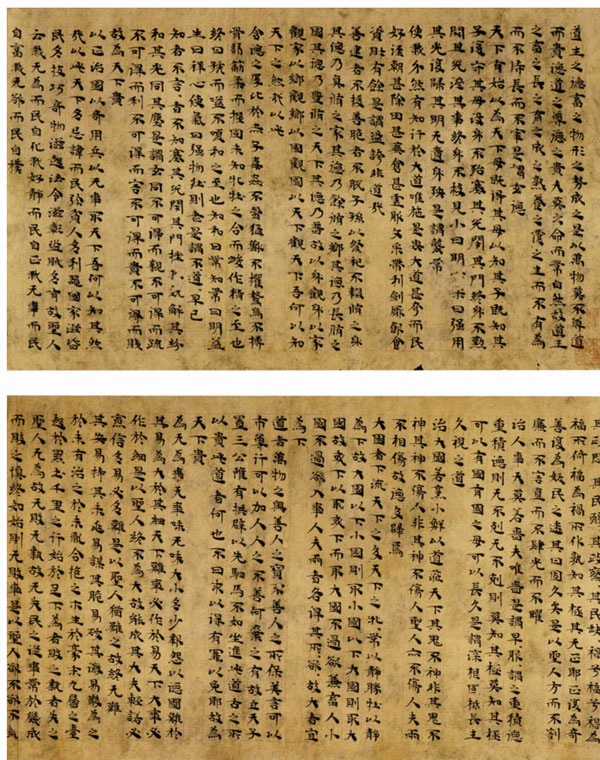 道生之德畜之物形之勢成之是以萬物莫不尊道
而貴德道之尊德之貴夫莫之命而常自然故道生
之畜之長之育之成之熟之養之覆之生而不有為
而不恃長而不宰是謂玄德
天下有始以為天下母既得其母以知其子既知其
子復守其母沒身不殆塞其兌閉其門終身不勤
開其兌濟其事終身不救見小曰明守柔曰强用
其光復歸其明无遺身殃是謂襲常
使我介然有知行於大道唯施是畏大道甚夷而民
好徑朝甚除田甚蕪倉甚虛服文采帶利劍厭飲食
資財有餘是謂盜誇非道哉
善建者不拔善抱者不脫子孫以祭祀不輟脩之身
其德乃真脩之家其德乃餘脩之鄉其德乃長脩之
國其德乃豐脩之天下其德乃普故以身觀身以家
觀家以鄉觀鄉以國觀國以天下觀天下吾何以知
天下之然哉以此
含德之厚比於赤子毒蟲不螫猛獸不攫鷙鳥不搏
骨弱筋柔而握固未知牝牡之合而峻作精之至也
終日號而嗌不嗄和之至也知和曰常知常曰明益
生曰祥心使氣曰强物壯則老是謂不道早已
知者不言言者不知塞其兌閉其門挫其銳解其紛
和其光同其塵是謂玄同不可得而親不可得而疏
不可得而利不可得而害不可得而貴不可得而賤
故為天下貴
以正治國以奇用兵以无事取天下吾何以知其然
哉以此天下多忌諱而民彌貧人多利器國家滋昏
民多技巧奇物滋起法令滋彰盜賊多有故聖人
云我无為而民自化我好靜而民自正我无事而民
自富我无欲而民自樸
其政察察其民缺缺禍兮福
所倚福兮禍所伏孰知其極其无正耶正復為奇
善復為妖民之迷其日固久矣是以聖人方而不割
廉而不害直而不肆光而不曜
治人事天莫若嗇夫唯嗇是謂早服早服謂之重積德
重積德則无不剋无不剋則莫知其極莫知其極
可以有國有國之母可以長久是謂深根固柢長生
久視之道
治大國若烹小鮮以道莅天下其鬼不神非其鬼不
神其神不傷人非其神不傷人聖人亦不傷人夫兩
不相傷故德交歸焉
大國者下流天下之交天下之牝牝常以靜勝牡以靜
為下故大國以下小國則取小國小國以下大國則取大
國故或下以取或下而取大國不過欲兼畜人小
國不過欲入事人夫兩者各得其所欲故大者宜
為下
道者萬物之奧善人之寶不善人之所保美言可以
市尊行可以加人人之不善何棄之有故立天子
置三公雖有拱璧以先駟馬不如坐進此道古之所
以貴此道者何也不曰求以得有罪以免耶故為
天下貴
為无為事无事味无味大小多少報怨以德圖難於
其易為大於其細天下難事必作於易天下大事必
作於細是以聖人終不為大故能成其大夫輕諾必
寡信多易必多難是以聖人猶難之故終无難
其安易持其未兆易謀其脆易破其微易散為之
於未有治之於未亂合抱之木生於豪末九層之臺
起於累土千里之行始於足下為者敗之執者失之
聖人无為故无敗无執故无失民之從事常於幾成
而敗之慎終如始則无敗事是以聖人欲不欲不貴